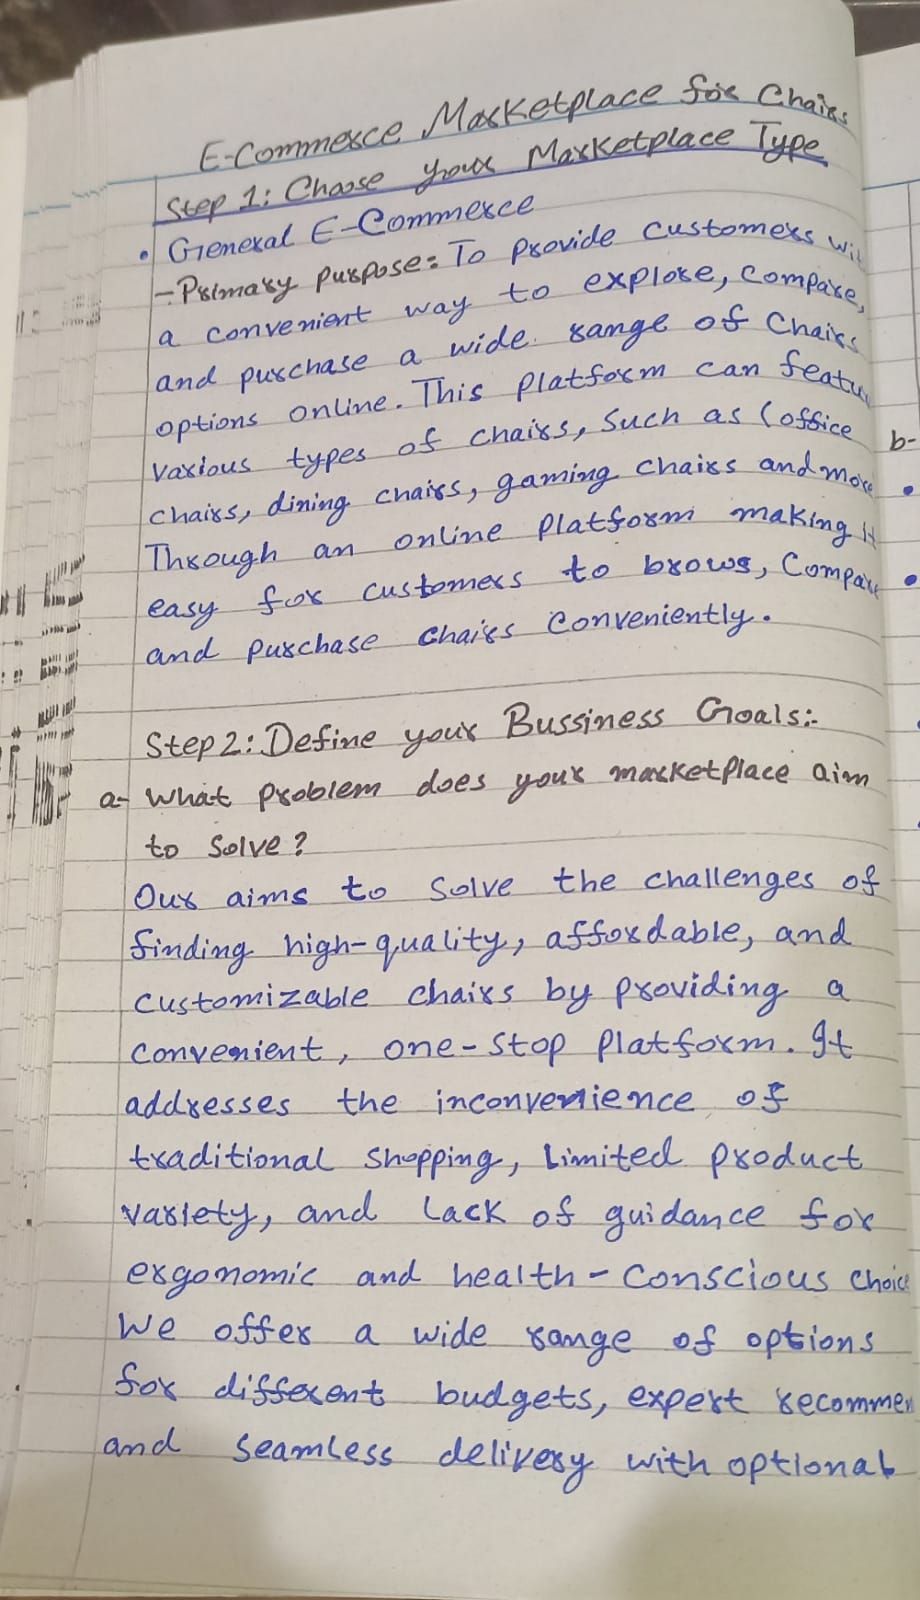 E-Commerce Marketplace for Chairs
Step 1: Choose your Marketplace Type
• General E-Commerce
- Primary purpose: To provide customers
a convenient way to explore, compare,
and purchase a wide range of Chairs
options online. This Platform can
various types of chairs, Such as (office
chairs, dining chairs, gaming chairs and more
Through an online Platform making it
easy for customers to brows, Compare
and purchase chairs Conveniently.
Step 2: Define your Bussiness Goals:-
a- What problem does your marketplace aim
to Solve?
Our aims to Solve the challenges of
finding high-quality, affordable, and
customizable chairs by providing a
convenient, one-stop Platform. It
addresses the inconvenience of
traditional Shopping, Limited product
variety, and Lack of guidance for
ergonomic and health-Conscious
We offer a wide range of options
for different budgets, expert
and seamless delivery with optional
b-
•
•